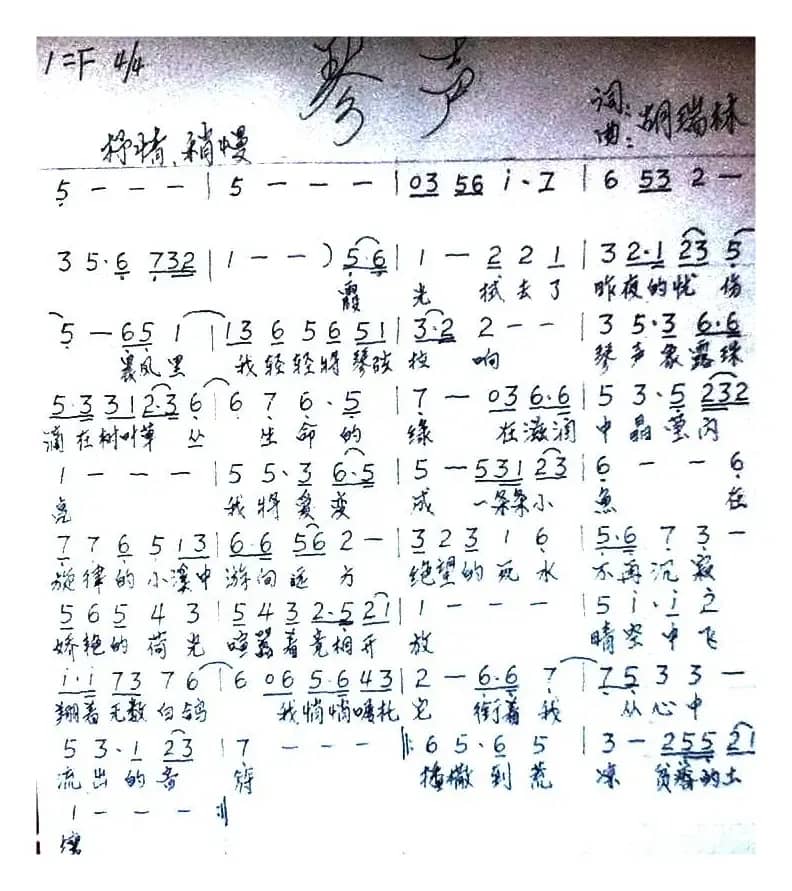 1=F 4/4
琴声
词:
曲: 胡瑞林
抒情、稍慢
5 - - - | 5 - - - | 03 56 i·7 | 6 53 2 -
3 5·6 732 | 1 - - ) 5·6 | 1 - 2 2 1 | 3 2·1 23 5
霞 光 拭去了 昨夜的忧伤
5 - 65 1 | 13 6 56 51 | 3·2 2 - - | 3 5·3 6·6
晨风里 我轻轻将琴弦 拨响 琴声象露珠
5·3 31 2·3 6 | 6 7 6·5 | 7 - 03 6·6 | 5 3·5 232
滴在树叶草丛 生命的 绿 在滋润 中晶莹闪
1 - - - | 5 5·3 6·5 | 5 - 531 23 | 6 - - 6
亮 我将爱变 成 一条条小 鱼 在
7 7 6 5 13 | 6·6 56 2 - | 3 2 3 1 6 | 5·6 7 3 -
旋律的小溪中 游向远方 绝望的死水 不再沉寂
5 6 5 4 3 | 5 4 3 2·5 21 | 1 - - - | 5 i·i 2
娇艳的荷光 喧嚣着竞相开 放 晴空中飞
i·i 73 76 | 6 06 5·6 43 | 2 - 6·6 7 | 75 3 3 -
翔着无数白鸽 我悄悄嘱托 它 衔着我 从心中
5 3·1 23 | 7 - - - |: 6 5·6 5 | 3 - 255 21
流出的音 符 播撒到荒 凉 贫瘠的土
1 - - - :|
壤